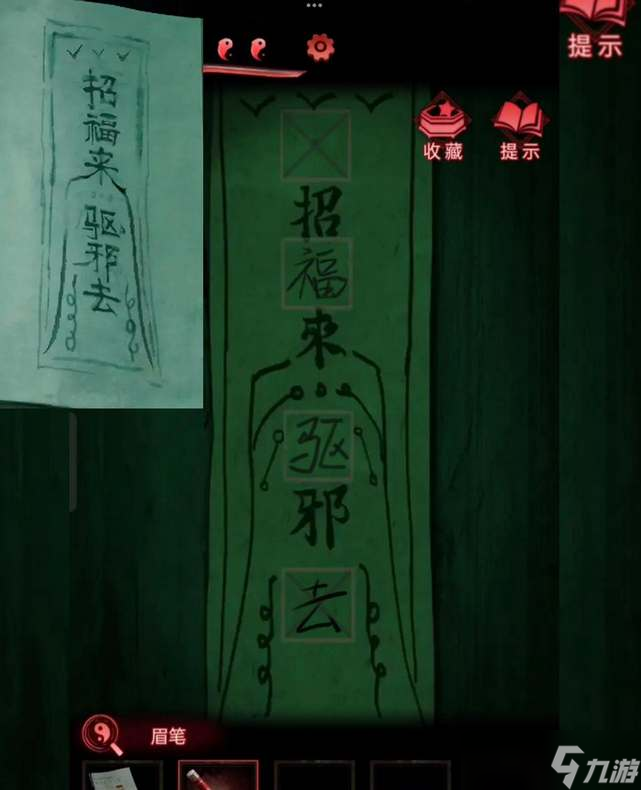 招福来
驱邪去
提示
收藏
提示
招
福
來
驱
邪
去
眉笔
九游